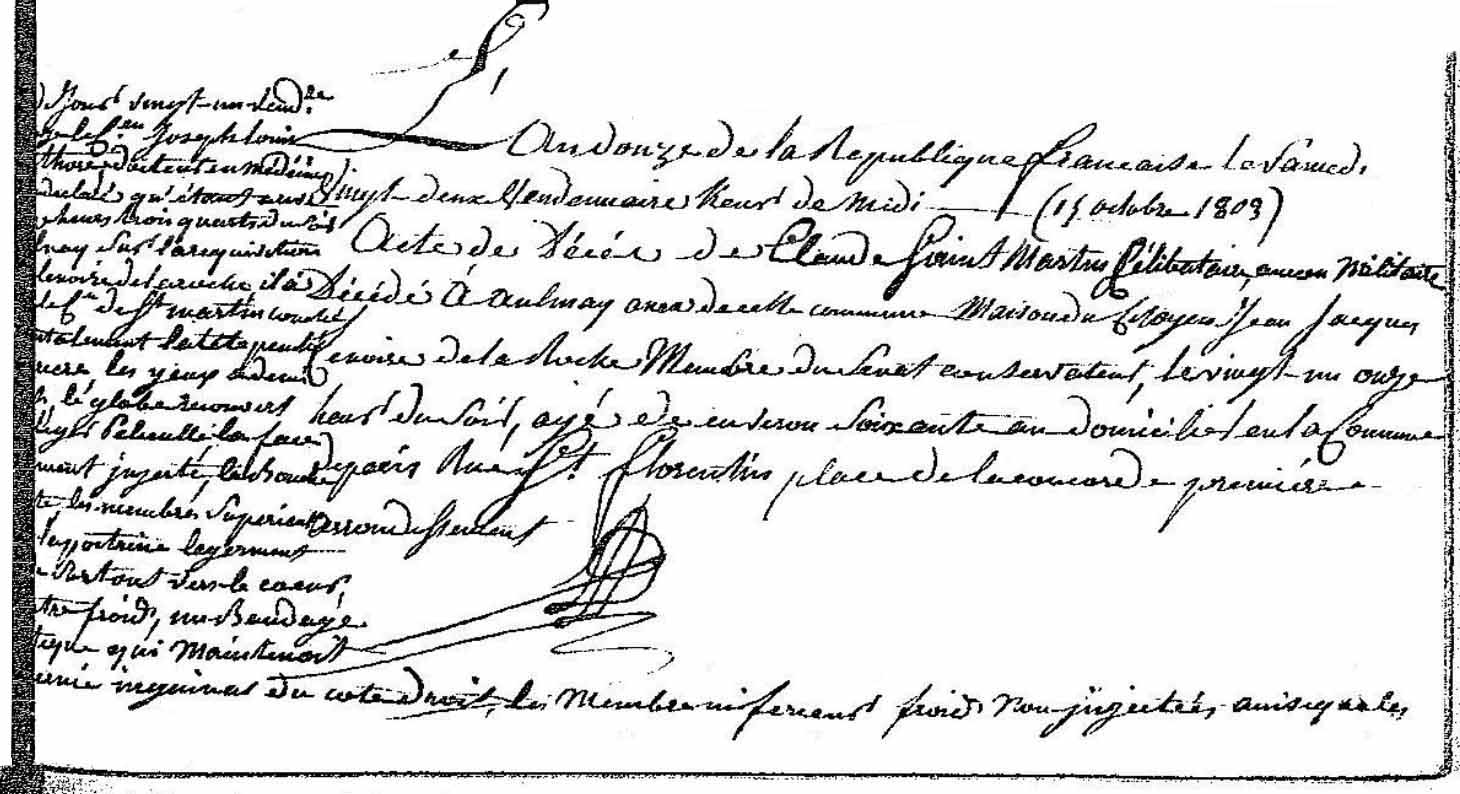 An douze de la Republique francaise le Samedi
Vingt-deux Vendemiaire heurs de Midi (15 octobre 1803)
Acte de Décés de Claude Saint Martin Célibataire, ancien Militaire
Décédé à aulnay annexe de cette commune Maison du Citoyen Jean Jacques
Lenoire de la Roche Membre du Senat conservateur, le vingt-un onze
heurs du Soir, agé de environ Soixante an domicilié en la Commune
de paris Rue St. florentin place de la concorde premiére
arrondissement
Jours vingt-un vend.re
le C.en Joseph louis
thoré, doiteur en médécine
declaré qu'étant arivé
heurs trois quarts du soir
lnay sur la requisition
lenoire de la roche il a
le C.n de St martin couché
ntalement la tete penchée
les yeux a demi
le globe recouvert
la face
ment injecté, la bouche
te, les membres Superieurs
la poitrine legerment
e Surtout vers le coeur,
tre froid, un Bandage
tique qui Maintenoit
ernie inguinal du cote droit, les Membre inferieurs froids Non jnjectés, ainsi que les